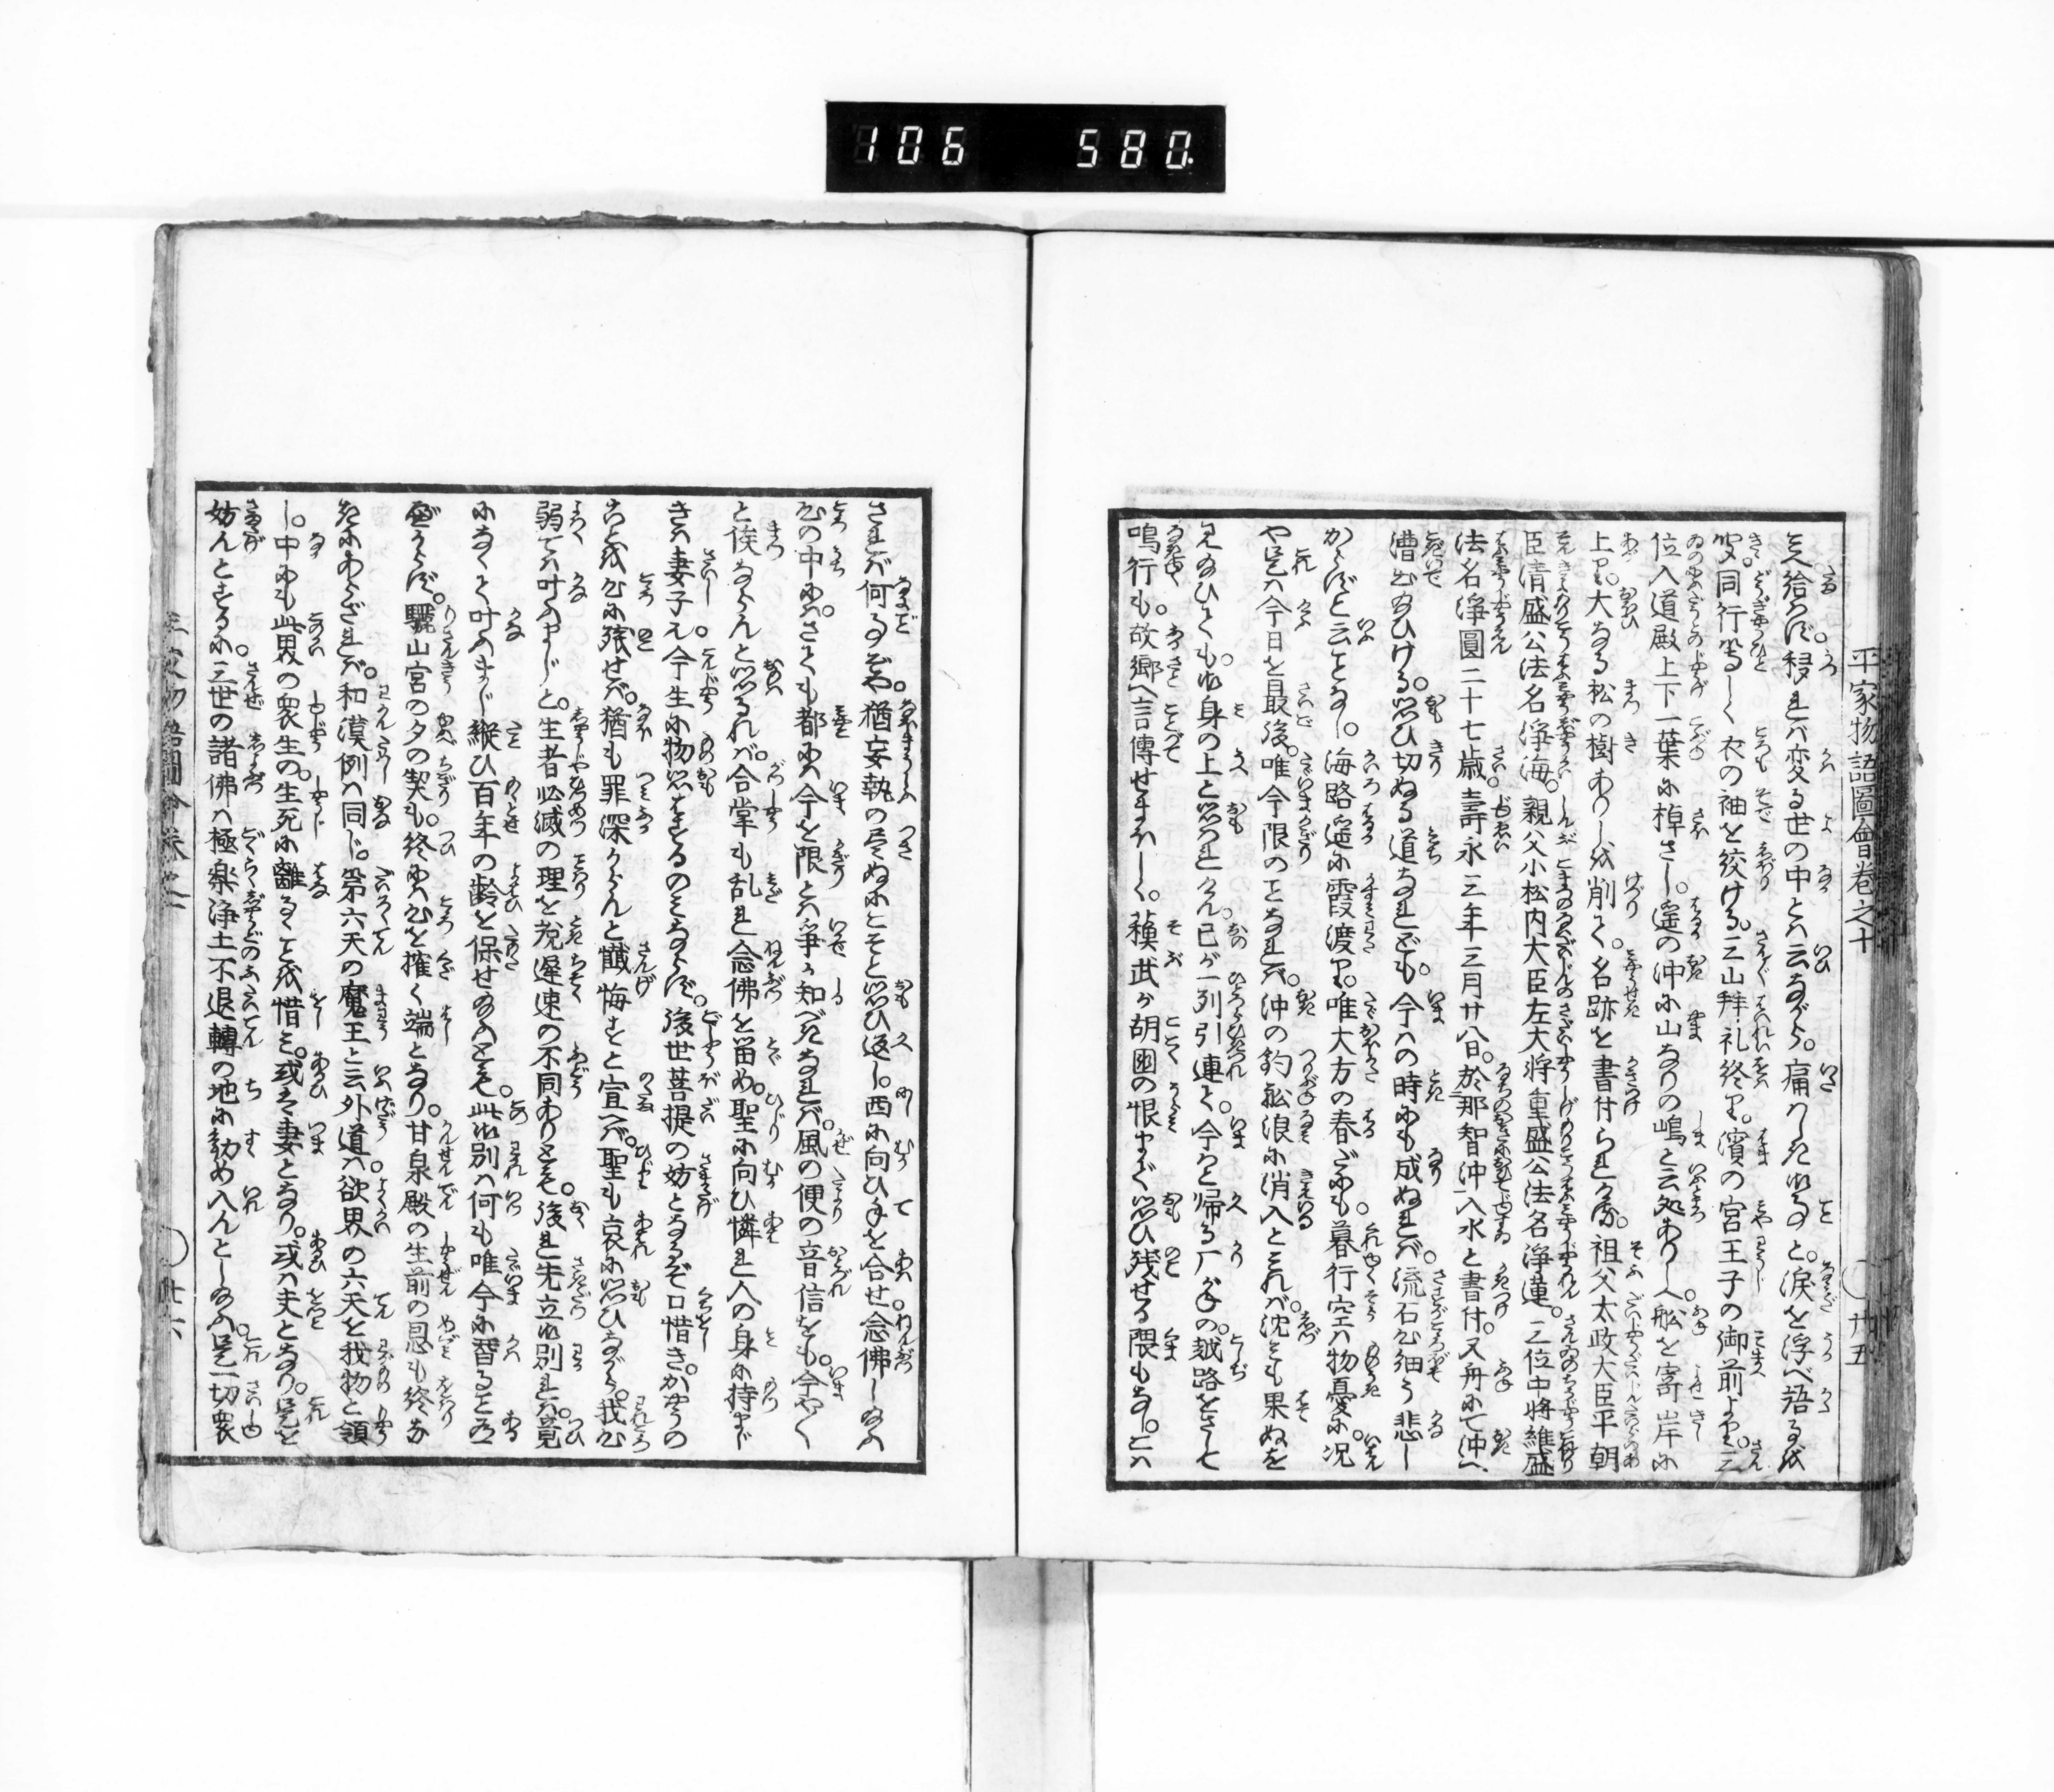 106 580
平家物語圖會卷之十 廿五
見給はず。移れは変る世の中とは云ながら。痛はしき御事と。涙を浮べ語るを
聞。同行等しく衣の袖を絞ける。三山拜礼終り。濱の宮王子の御前より。三
位入道殿上下一葉に棹さし。遥の沖に山なりの嶋と云処あり。人舩を寄岸に
上り。大なる松の樹ありしを削て。名跡を書付られける。祖父太政大臣平朝
臣清盛公法名淨海。親父小松内大臣左大将重盛公法名淨蓮。三位中将維盛
法名淨圓二十七歳。壽永三年三月廿八日。於那智沖入水と書付。又舟にて沖へ
漕出給ひける。思ひ切ぬる道なれども。今はの時にも成ぬれば。流石心細う悲し
からずと云ことなし。海路遥に霞渡り。唯大方の春だにも。暮行空は物憂に。况
や是は今日を最後。唯今限のことなれば。沖の釣舩浪に消入とみれば。沈も果ぬを
見給ひても。御身の上と思はれけん。己が一列引連て。今を帰る厂がねの。越路をさして
鳴行も。故郷へ言傳せまほしく。穰武が胡國の恨まで思ひ残せる隈もなし。こは
されば何事ぞや。猶妄執の尽ぬにこそと思ひ返し。西に向ひ手を合せ念佛し給ふ
心の中には。さても都には今を限とは爭か知べきなれば。風の便の音信をも。今や〱
と俟ならんと思はれば。合掌も乱れ念佛を畄め。聖に向ひ憐れ人の身に持まじ
きは妻子。今生に物思はするのみならず。後世菩提の妨となるぞ口惜き。かやうの
ことを心に残せば。猶も罪深からんと懺悔すと宣へば。聖も哀に思ひながら。我心
弱ては叶ふまじと。生者必滅の理を說。遅速の不同ありとも。後れ先立御別れは。竟
になくて叶ふまじ縱ひ百年の齢を保せ給ふとも。此御別は何も唯今に替ること有
べからず。驪山宮の夕の契も。終には心を摧く端となり。甘泉殿の生前の恩も終な
きにあらざれば。和漢例は同じ。第六天の魔王と云外道は。欲界の六天を我物と領
し。中にも此界の衆生の。生死に離ることを惜み。或は妻となり。或は夫となり。是を
妨んとするに。三世の諸佛は極楽浄土不退轉の地に勧め入んとし給ふ。是一切衆